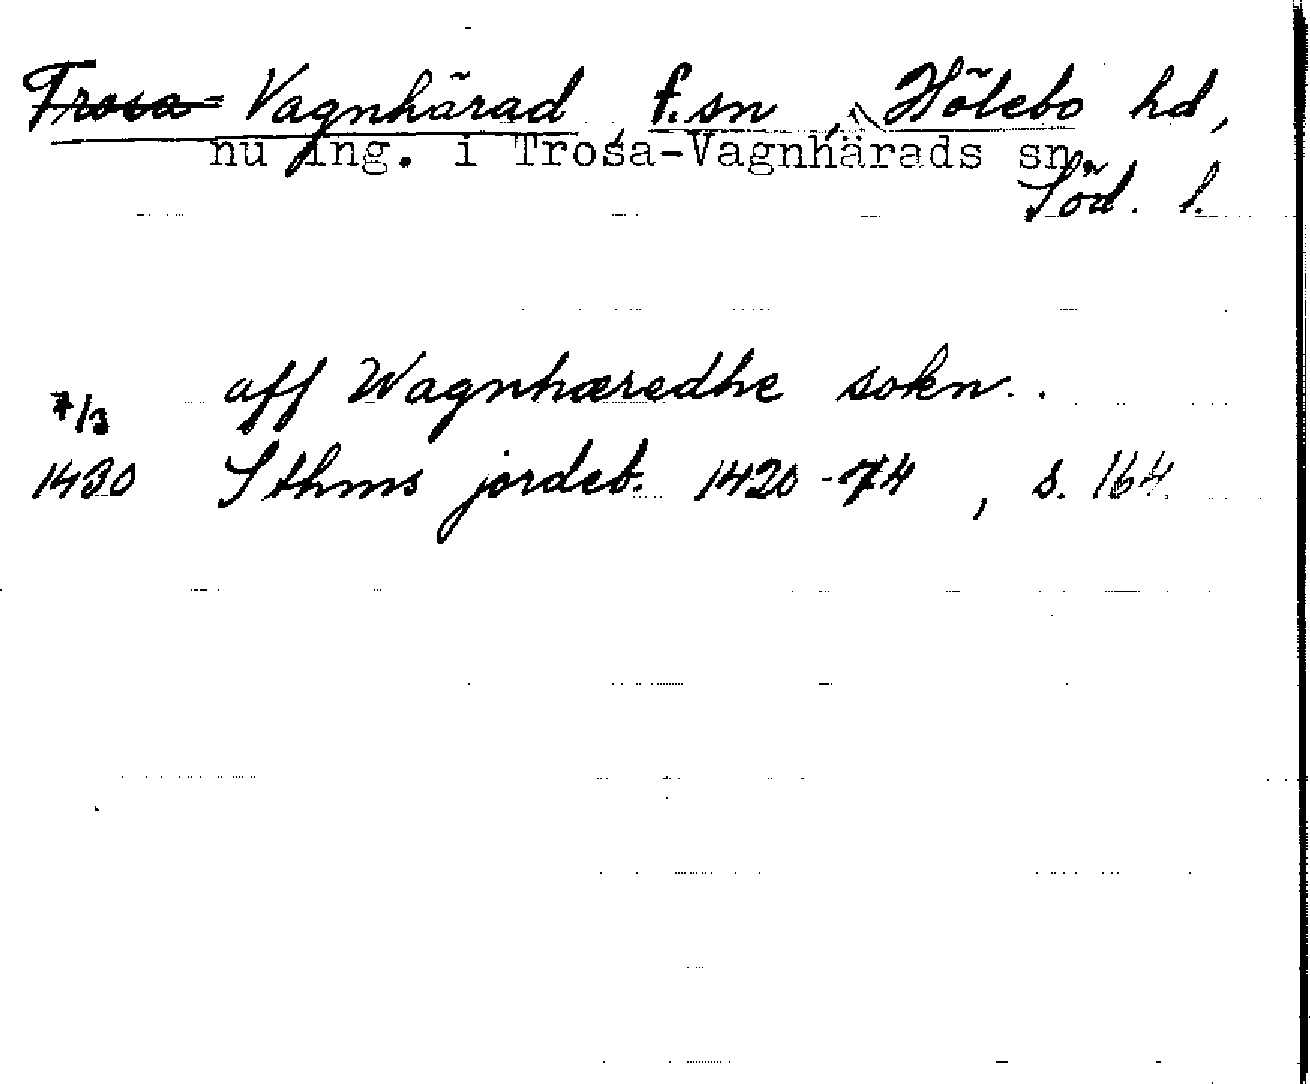 Trosa- Vagnhärad, f.sn, Hölebo hd,
nu ing. i Trosa-Vagnhärads sn
Söd. l.
7/3 aff Wagnhæredhe sokn.
1430 Sthms jordeb. 1420-74, s. 164.